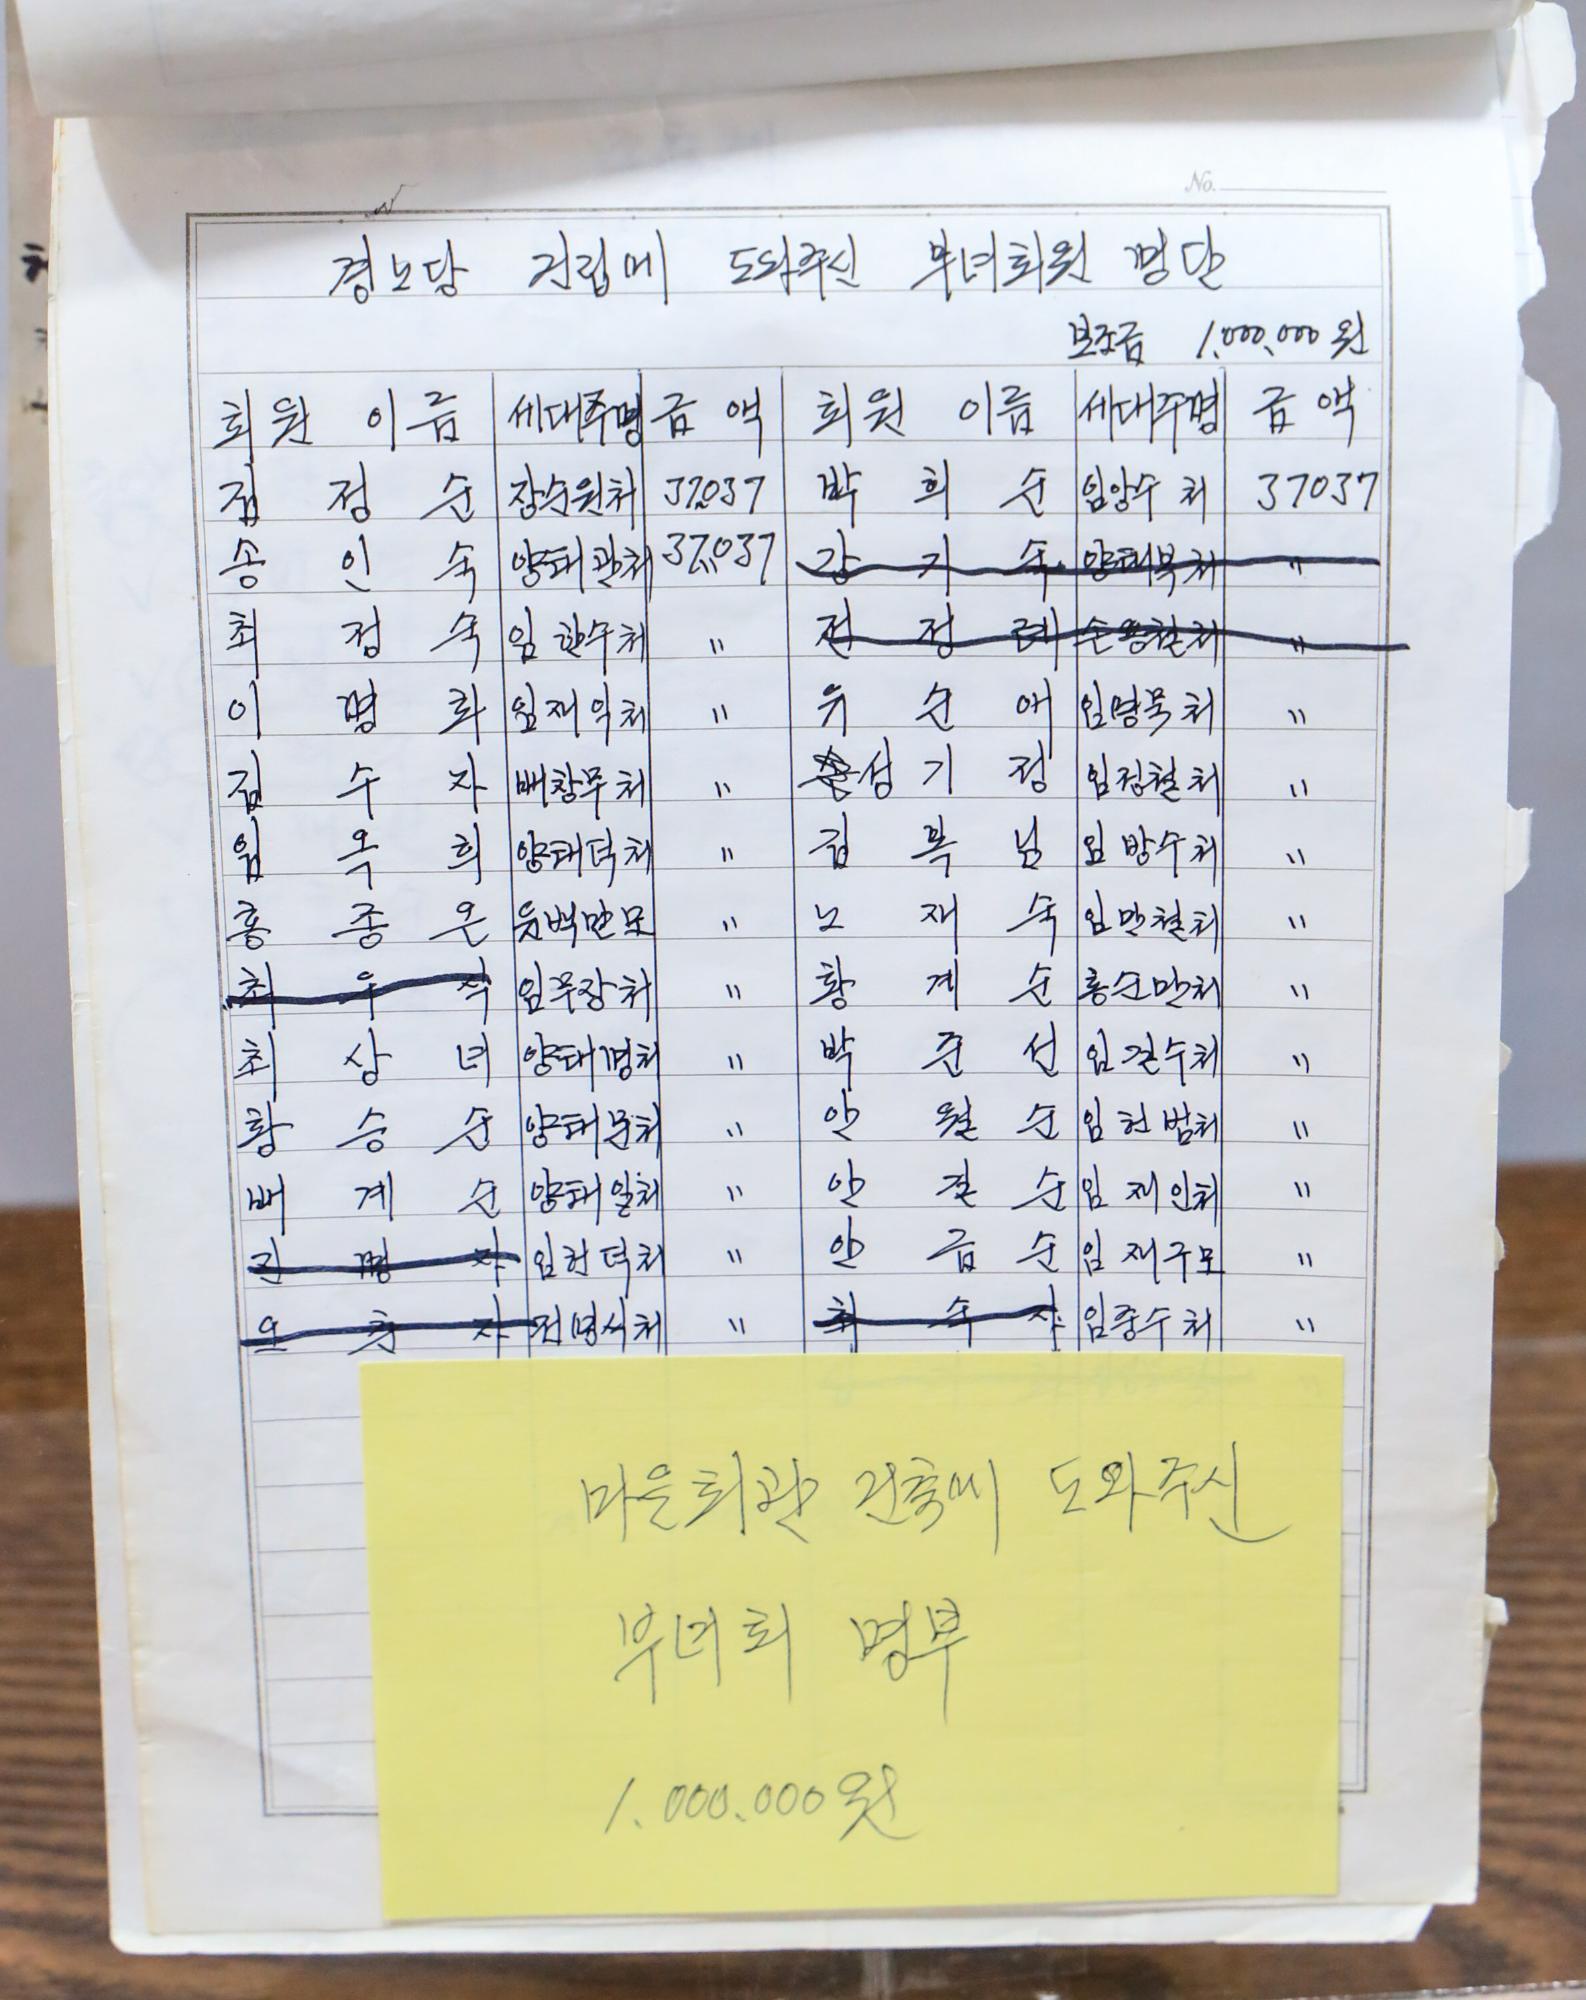 No.
경노당 건립에 도와주신 부녀회원 명단
보조금 1.000.000원
회원 이름 세대주명 금액 회원 이름 세대주명 금액
김 정 순 장순원처 37.037 박 희 순 임양수 처 37037
송 인 숙 양태관처 37.037 강 기 숙 양태복처 〃
최 정 숙 임한수처 〃 전 정 례 손용철처 〃
이 명 화 임재익처 〃 우 순 애 임명묵처 〃
김 수 자 배창무처 〃 성 기 정 임정철처 〃
임 옥 희 양태덕처 〃 김 복 님 임방수처 〃
홍 종 은 윤백만모 〃 노 재 숙 임만철처 〃
최 우 식 임무장처 〃 황 계 순 홍순만처 〃
최 상 녀 양태경처 〃 박 준 선 임건수처 〃
황 승 순 양태문처 〃 안 월 순 임헌범처 〃
배 계 순 양태일처 〃 안 길 순 임재인처 〃
진 명 자 임헌덕처 〃 안 금 순 임재구모 〃
오 춘 자 전명식처 〃 최 숙 자 임중수처 〃
마을회관 건축에 도와주신
부녀회 명부
1.000.000원